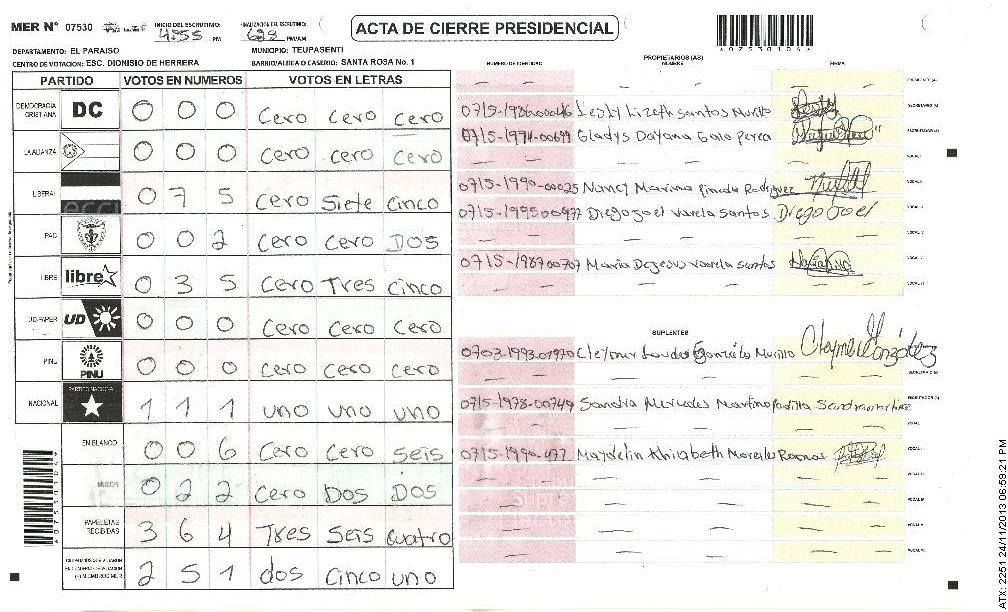 MER N° 07530 INICIO DEL ESCRUTINIO: 4:55 PM FINALIZACIÓN DEL ESCRUTINIO: 6:29 PM/AM
ACTA DE CIERRE PRESIDENCIAL
07530106
DEPARTAMENTO: EL PARAISO MUNICIPIO: TEUPASENTI
CENTRO DE VOTACION: ESC. DIONISIO DE HERRERA BARRIO/ALDEA O CASERIO: SANTA ROSA No. 1
PARTIDO VOTOS EN NUMEROS VOTOS EN LETRAS
DEMOCRACIA CRISTIANA DC 0 0 0 Cero Cero Cero
LA ALIANZA 0 0 0 Cero Cero Cero
LIBERAL 0 7 5 Cero Siete Cinco
PAC 0 0 2 Cero Cero DOS
LIBRE libre 0 3 5 Cero Tres Cinco
UD-FAPER UD 0 0 0 Cero Cero Cero
PINU PINU 0 0 0 Cero Cero Cero
NACIONAL PARTIDO NACIONAL 1 1 1 uno uno uno
EN BLANCO 0 0 6 Cero Cero seis
NULOS 0 2 2 Cero DOS DOS
PAPELETAS RECIBIDAS 3 6 4 Tres Seis Cuatro
2 5 1 dos Cinco uno
PROPIETARIOS (AS)
NUMERO DE IDENTIDAD NOMBRE FIRMA
Lesly Lizeth Santos Murillo
0715-1974-00699 Gladys Dayana Galo Perea
0715-1990-00025 Nancy Marina Pineda Rodriguez
0715-199500977 Diego Joel Varela Santos Diego Joel
0715-198700707 Maria Dejesus Varela Santos
SUPLENTES
0703-1993-01970
0715-1978-00749 Sandra Mercedes Martinez Padilla
0715-1990-
ATX: 2251 24/11/2013 06:59:21 PM